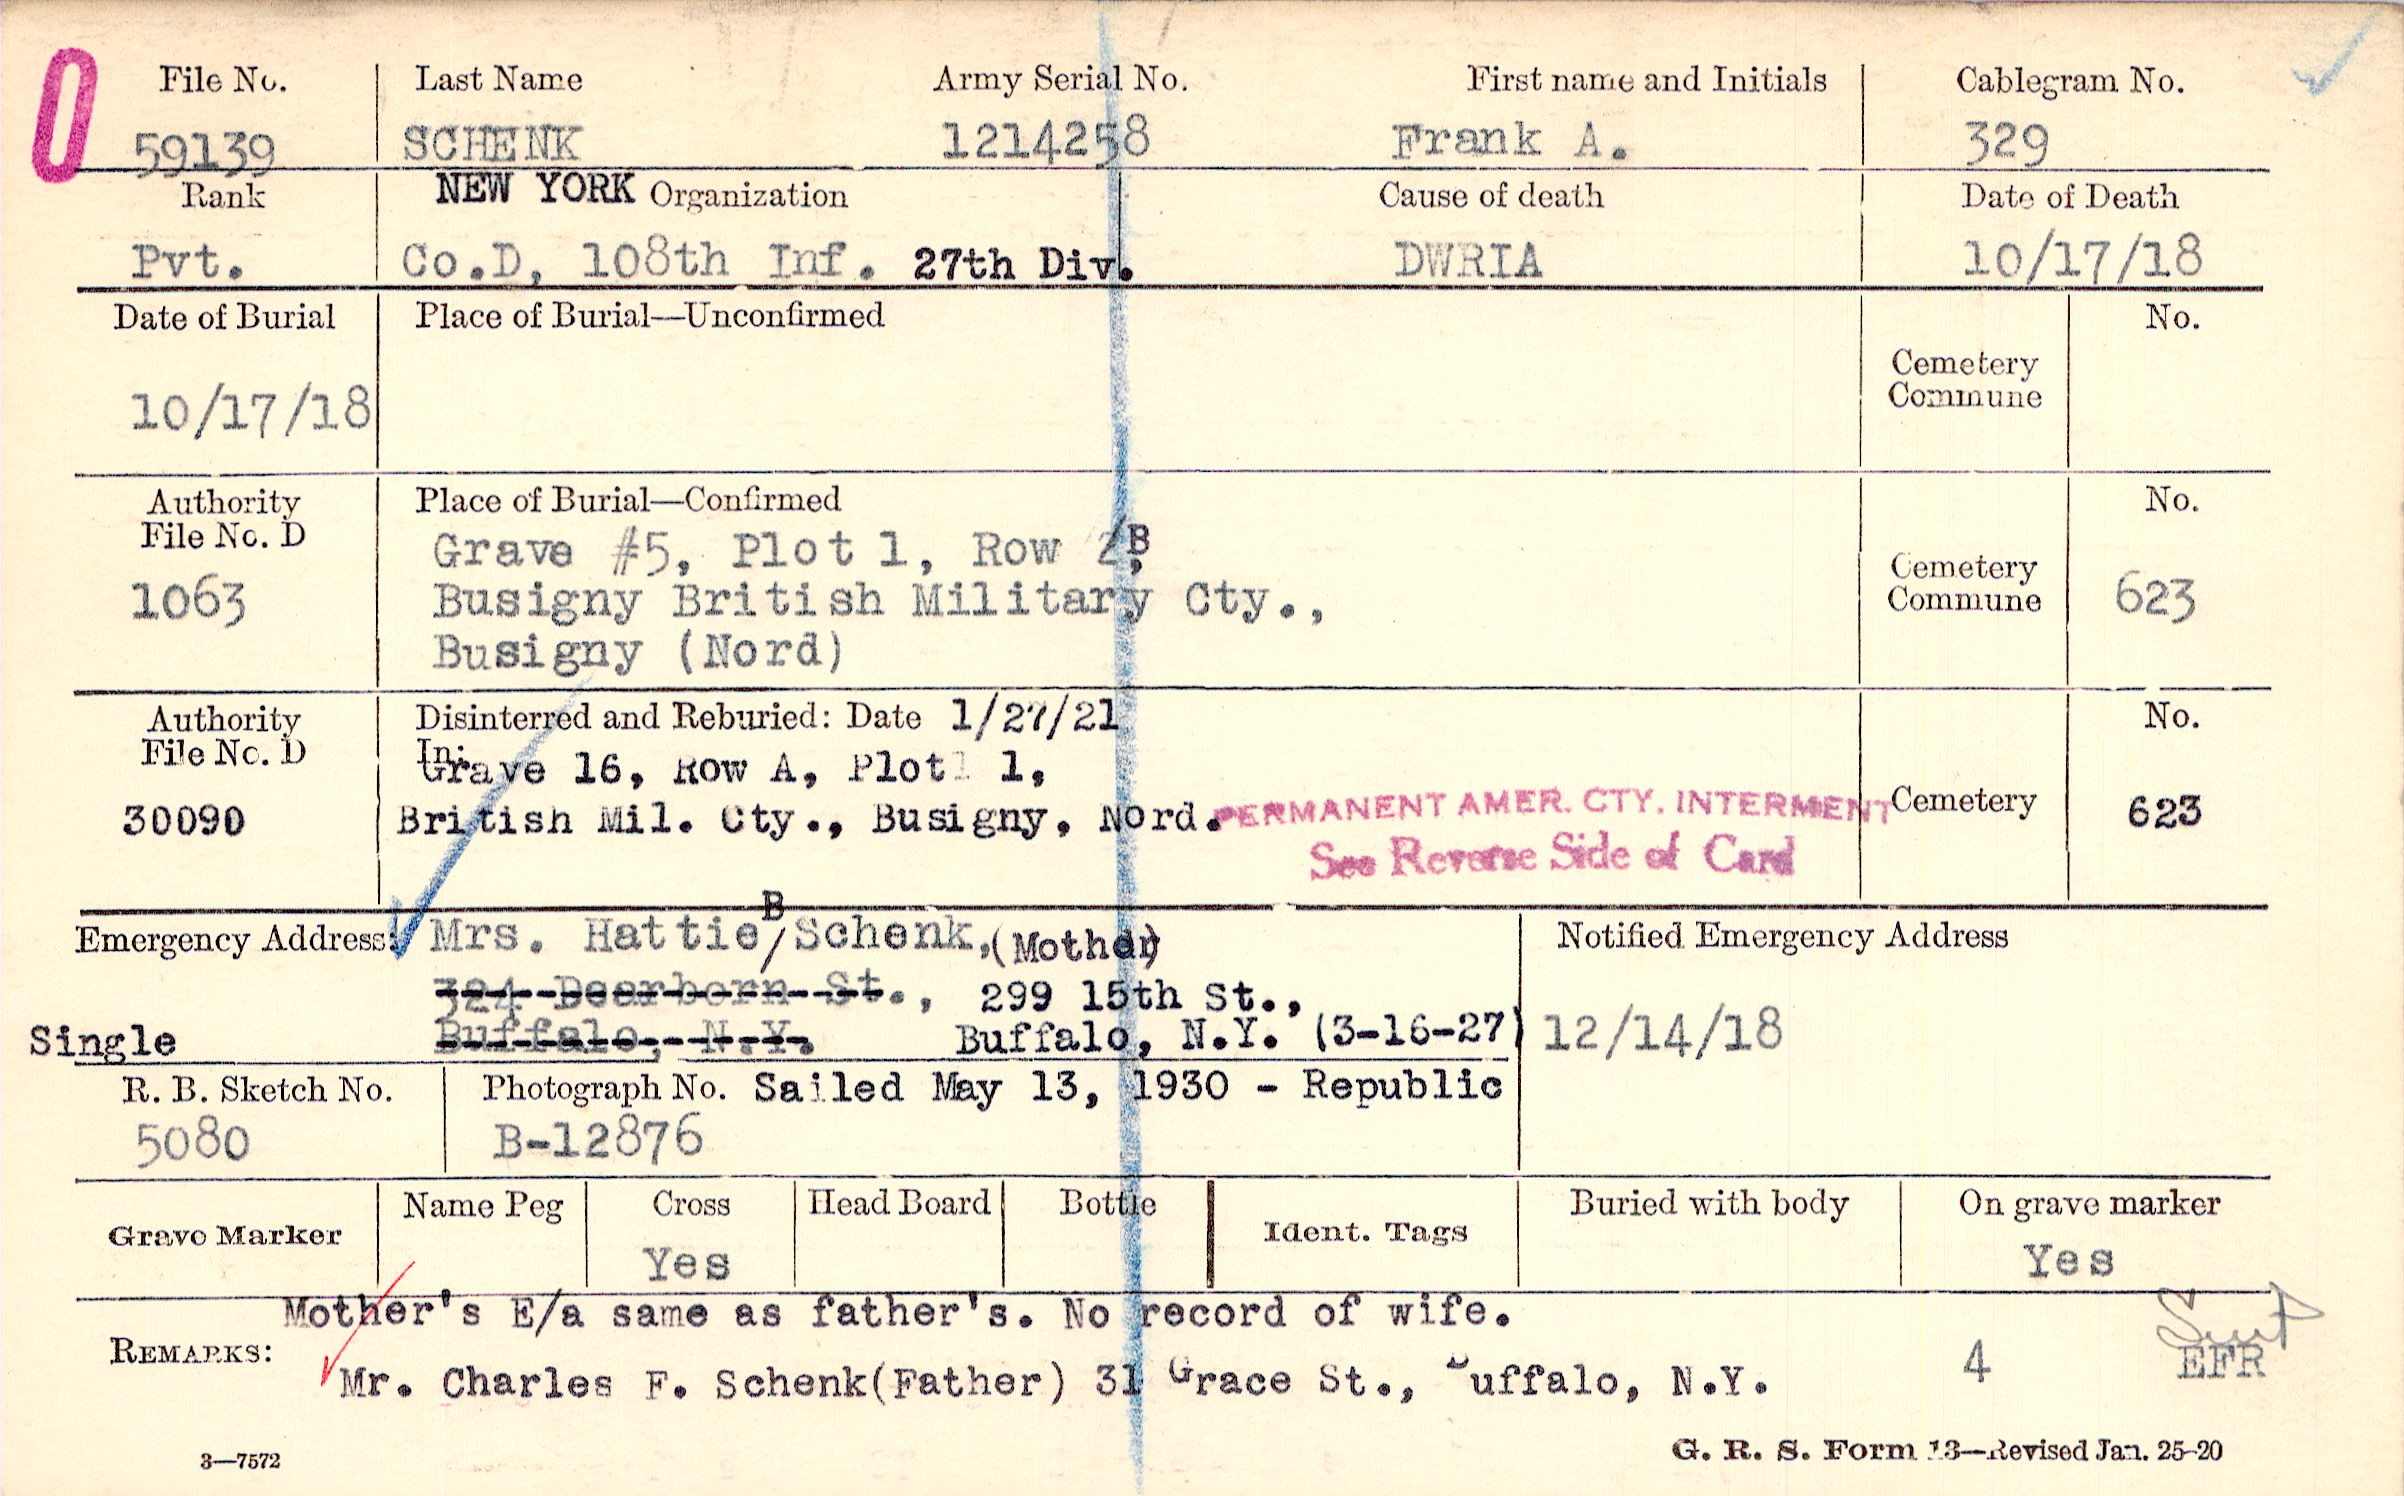 File No. Last Name Army Serial No. First name and Initials Cablegram No.
59139 SCHENK 1214258 Frank A. 329
Rank NEW YORK Organization Cause of death Date of Death
Pvt. Co.D, 108th Inf. 27th Div. DWRIA 10/17/18
Date of Burial Place of Burial—Unconfirmed No.
Cemetery
Commune
10/17/18
Authority Place of Burial—Confirmed No.
File No. D
Grave #5, Plot 1, Row 2, B
1063 Busigny British Military Cty., Cemetery
Commune 623
Busigny (Nord)
Authority Disinterred and Reburied: Date 1/27/21 No.
File No. D In:
Grave 16, Row A, Plot 1,
30090 British Mil. Cty., Busigny, Nord. PERMANENT AMER. CTY. INTERMENT Cemetery 623
See Reverse Side of Card
B
Emergency Address: Mrs. Hattie / Schenk, (Mother) Notified Emergency Address
324 Dearborn St., 299 15th St.,
Single Buffalo, N.Y. Buffalo, N.Y. (3-16-27) 12/14/18
R. B. Sketch No. Photograph No. Sailed May 13, 1930 - Republic
5080 B-12876
Grave Marker Name Peg Cross Head Board Bottle Ident. Tags Buried with body On grave marker
Yes Yes
Mother's E/a same as father's. No record of wife.
REMARKS:
Mr. Charles F. Schenk(Father) 31 Grace St., Buffalo, N.Y. 4 EFR
3—7572 G. R. S. Form 13—Revised Jan. 25-20